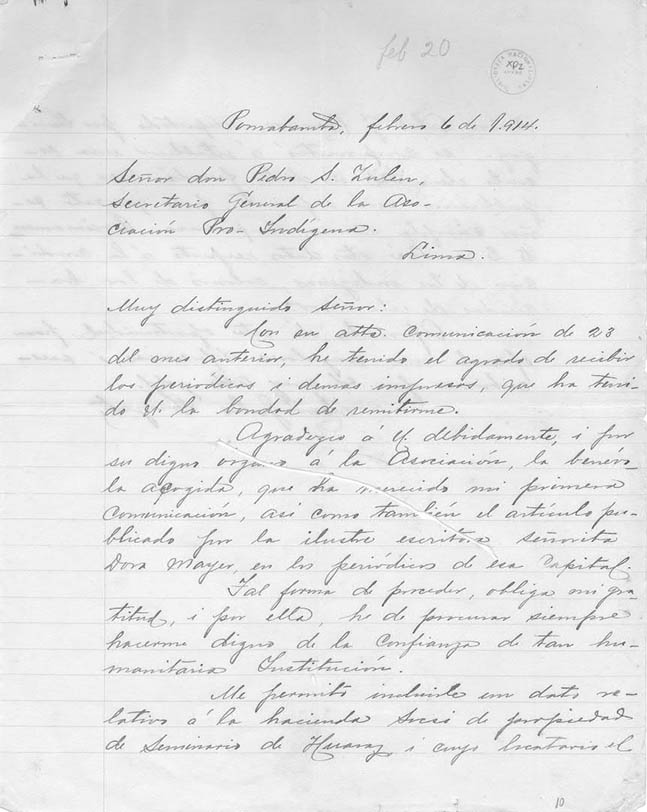 feb 20
Pomabamba, febrero 6 de 1.914.
Señor don Pedro S. Zulen,
Secretario General de la Aso-
ciación Pro-Indígena.
Lima.
Muy distinguido señor:
Con su atta. comunicación de 23
del mes anterior, he tenido el agrado de recibir
los periódicos i demas impresos, que ha teni-
do U. la bondad de remitirme.
Agradezco á U. debidamente, i por
su digno organo á la Asociación, la benévo-
la acogida, que ha merecido mi primera
comunicación, así como también el artículo pu-
blicado por la ilustre escritora señorita
Dora Mayer, en los periódicos de esa Capital.
Tal forma de proceder, obliga mi gra-
titud, i por ella, he de procurar siempre
hacerme digno de la confianza de tan hu-
manitaria Institucion.
Me permito incluirle un dato re-
lativo á la hacienda de propiedad
de Seminario de Huaraz i cuyo locatario el
10